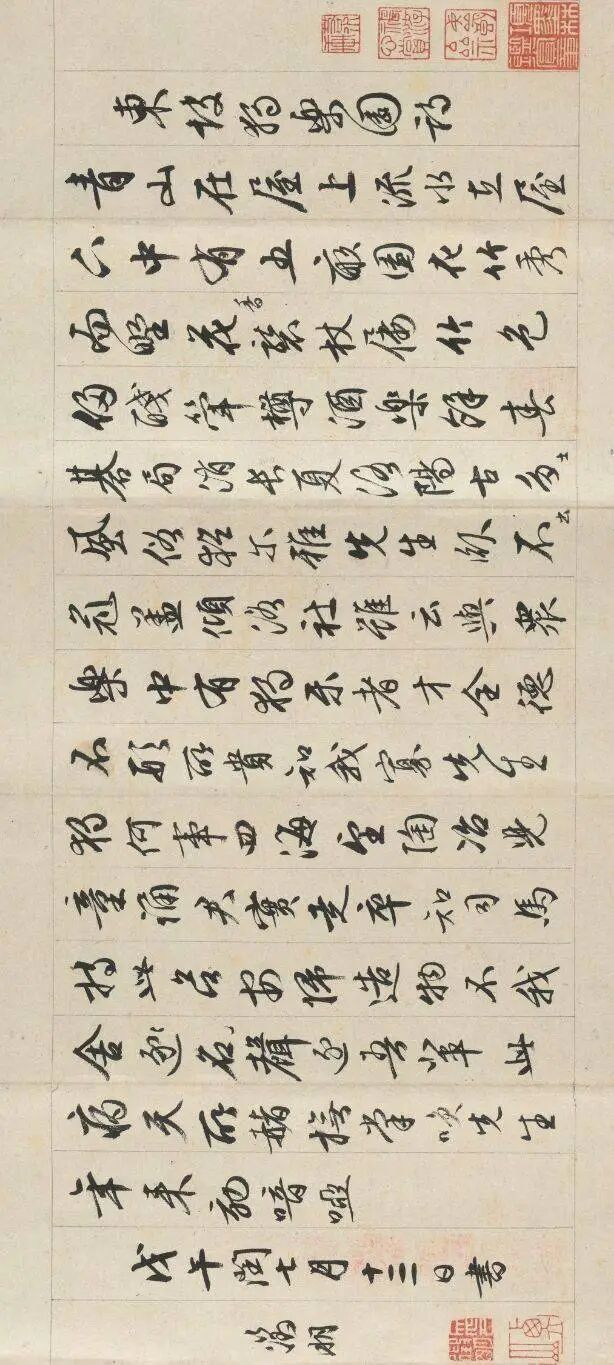 東坡獨樂園詩
青山在屋上流水在屋
下中有五畝園花竹秀
而野花香襲杖屨竹色
侵醆斝樽酒樂餘春
棊局消長夏洛陽古多士
風俗猶尔雅先生臥不出
冠蓋傾洛社雖云與眾
樂中有獨樂者才全德
不形所貴知我寡先生
獨何事四海望陶冶兒
童誦君實走卒知司馬
持此名安歸造物不我
舍逐名聲逐吾輩此
病天所赭撫掌笑先生
年來效喑啞
戊午閏七月十三日書
徵明